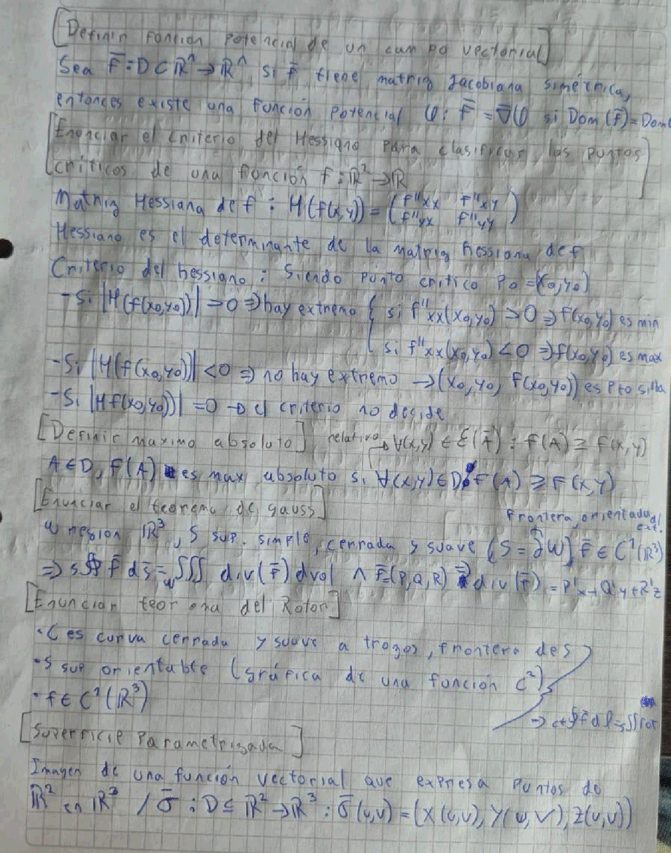 [Definir Función Potencial de un campo vectorial]
Sea F̄:D⊂ℝⁿ→ℝⁿ, si F̄ tiene matriz Jacobiana simétrica,
entonces existe una función Potencial φ: F̄=∇̄φ si Dom(F̄)=Dom(
[Enunciar el Criterio del Hessiano Para clasificar los puntos
críticos de una función f:ℝ²→ℝ]
Matriz Hessiana de f : H(f(x,y))=(f''xx f''xy
f''yx f''yy)
Hessiano es el determinante de la matriz hessiana de f
Criterio del hessiano : Siendo Punto crítico P₀=(x₀,y₀)
-Si |H(f(x₀,y₀))|>0 ⇒ hay extremo { si f''xx(x₀,y₀)>0 ⇒ f(x₀,y₀) es min
si f''xx(x₀,y₀)<0 ⇒ f(x₀,y₀) es max
-Si |H(f(x₀,y₀))|<0 ⇒ no hay extremo → (x₀,y₀, f(x₀,y₀)) es Pto silla
-Si |Hf(x₀,y₀))|=0 → el criterio no decide
[Definir maximo absoluto] relativo → ∀(x,y) ∈ ξ(Ā) : f(A) ≥ f(x,y)
A∈D, f(A) es max absoluto si ∀(x,y)∈D: F(A) ≥ F(x,y)
[Enunciar el teorema de gauss]
frontera, orientada al ext.
W region ℝ³, S sup. simple, cerrada y suave (S=∂W) F̄∈C¹(ℝ³)
⇒ s∯ F̄ ds̄ = w∭ div(F̄) dvol ∧ F̄=(P,Q,R) ⇒ div(F̄) = P'x+Q'y+R'z
[Enunciar teorema del Rotor]
·C es curva cerrada y suave a trozos, frontera de S
·S sup orientable (gráfica de una función C²)
·f∈C¹(ℝ³)
→ c+∮F̄dl̄=∬rot
[Superficie Parametrizada]
Imagen de una función vectorial que expresa Puntos de
ℝ² en ℝ³ / σ̄ : D⊆ℝ²→ℝ³ : σ̄(u,v) = (X(u,v), Y(u,v), Z(u,v))